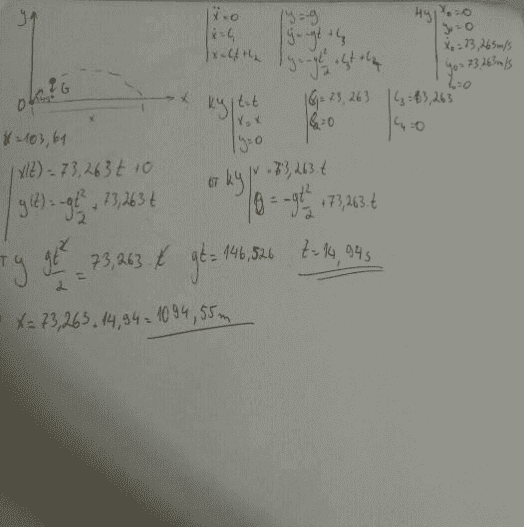 y
ẍ=0
ẋ=C₁
x=C₁t+C₂
ÿ=-g
ẏ=-gt+C₃
y=-gt²/2+C₃t+C₄
НУ
x₀=0
y₀=0
ẋ₀=73,263m/s
ẏ₀=73,263m/s
t₀=0
G
O
x
x
КУ
t=t
x=x
y=0
C₁=73,263
C₂=0
C₃=73,263
C₄=0
x(t)=73,263t+0
y(t)=-gt²/2+73,263t
от КУ
x=73,263.t
0=-gt²/2+73,263.t
gt²/2=73,263.t
gt=146,526
t=14,94s
x=73,263.14,94=1094,55m